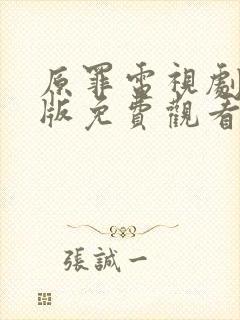 原罪電視劇
版免費觀看
張誠一